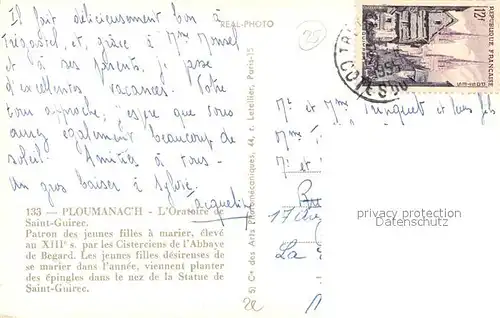 Il fait délicieusement bon à
Trégastel, et, grâce à Mme
et à ses parents, je passe
d'excellentes vacances. Votre
tour approche, j'espère que vous
aurez également beaucoup de
soleil. Amitiés à tous.
Un gros baiser à Sylvie.
Jacqueline
133 — PLOUMANAC'H - L'Oratoire de
Saint-Guirec.
Patron des jeunes filles à marier, élevé
au XIIIe s. par les Cisterciens de l'Abbaye
de Begard. Les jeunes filles désireuses de
se marier dans l'année, viennent planter
des épingles dans le nez de la Statue de
Saint-Guirec.
REAL-PHOTO
Cie des Arts Photomécaniques, 44, r. Letellier, Paris-15
25
12F
REPUBLIQUE FRANÇAISE
COTES DU
Mr et Mme et les fils
Mme
Mr et
17
La
privacy protection
DatenschutzDatenschutz